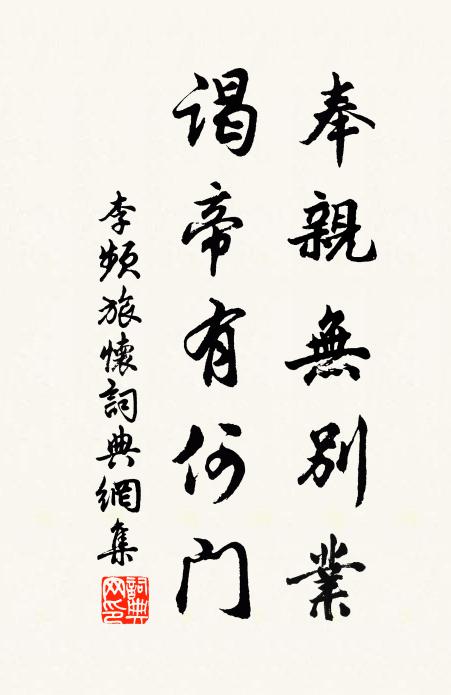 奉親無別業
謁帝有何門
李頻旅懷詞典網集
詞典網印